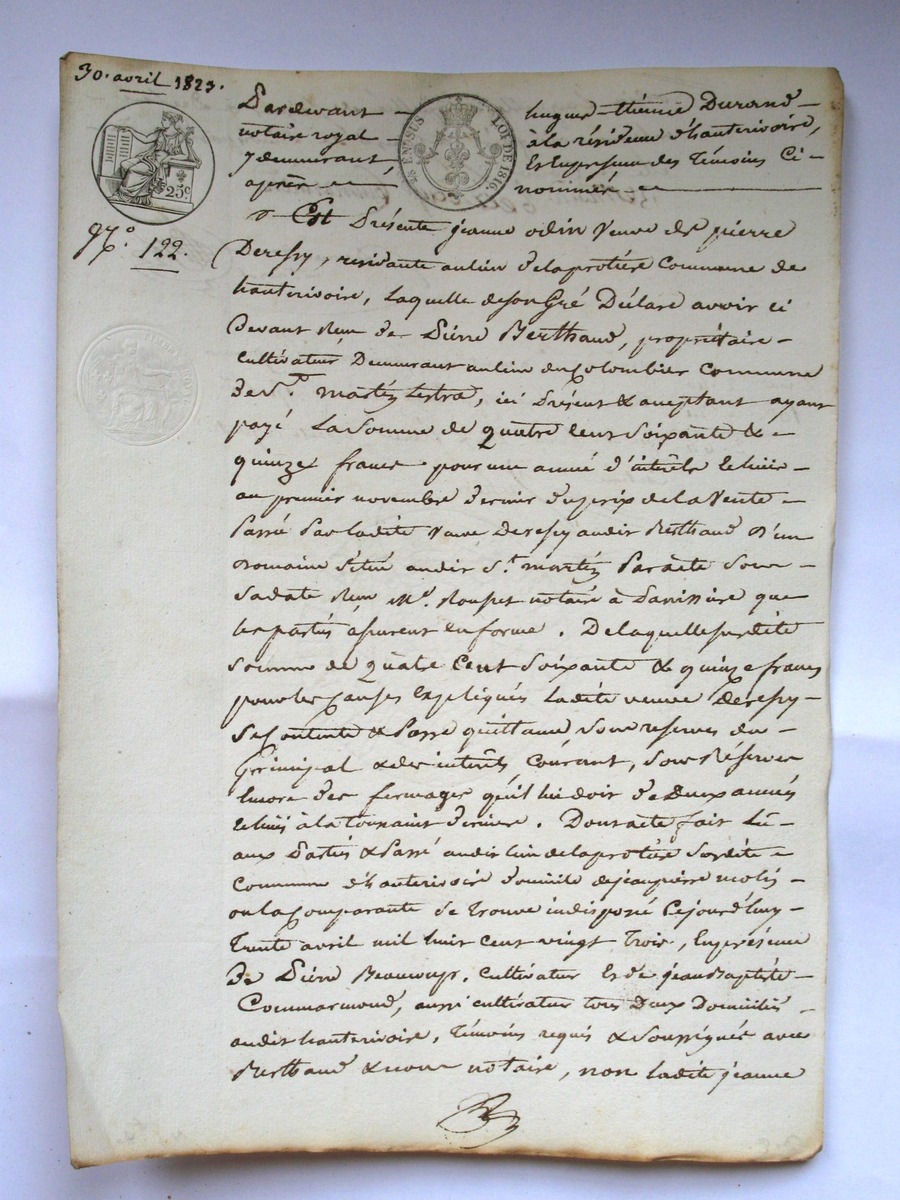 30. avril 1823.
Pardevant hugues-étienne Durand
notaire royal à la résidence d'hauterivoire,
y demeurant Et En présence des Témoins Ci-
après nommés
25.c
EN SUS LOI DE 1816.
N.o 122.
Est Présente jeanne odin veuve de pierre
Deressy, résidante au lieu de la protière Commune de
hauterivoire, Laquelle de son Gré Déclare avoir ci
devant Reçu de Pierre Berthaud, propriétaire
Cultivateur, Demeurant au lieu du Colombier Commune
de St. martin lestra, ici Présent & aceptant ayant
payé La Somme de quatre Cent Soixante &
quinze francs pour une année d'intérêts Echue
au premier novembre dernier du prix de la Vente
Passée Par ladite Veuve Deressy audit Berthaud d'un
domaine situé audit St. martin Par acte Sous
Sa date Reçu Me. Rouset notaire à Panissière que
les parties assurent en forme. De laquelle susdite
somme de quatre Cent Soixante & quinze francs
pour les Causes Expliqués Ladite veuve Deressy
Se Contente & Passe quittance sous reserves du
Principal & des intérêts Courant, Sous Réserves
Encore des fermages qu'il lui doit de Deux années
Echus à la toussaint dernière. Dont acte fait Lû
aux Parties & Passé audit lieu de la protière Susdite
Commune d'hauterivoire domicile de jean pierre
ou la Comparante Se Trouve indisposée Cejourd'huy
Trente avril mil huit Cent vingt Trois, En présence
de Pierre Beaucoup, Cultivateur Et de jean Baptiste
Commarmond, aussi cultivateur tous Deux Domiciliés
audit hauterivoire, Témoins requis & Soussignés avec
Berthaud & nous notaire, non Ladite jeanne